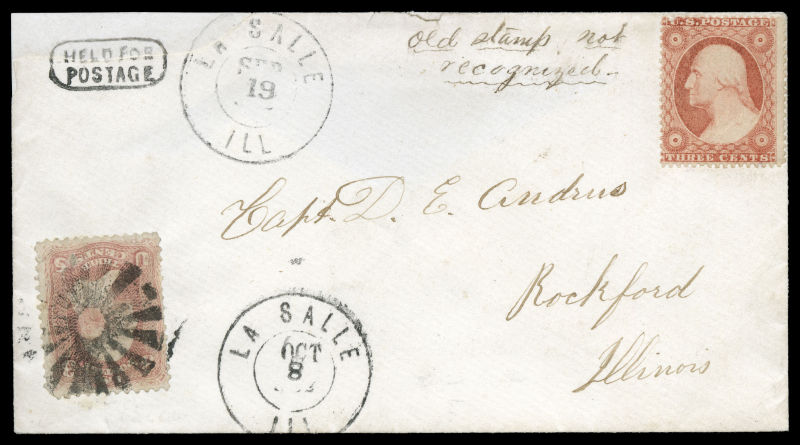 HELD FOR
POSTAGE
LA SALLE
SEP
19
ILL
old stamp not
recognized
U.S. POSTAGE
THREE CENTS
Capt. D. E. Andrus
Rockford
Illinois
U S
LA SALLE
OCT
8
ILL